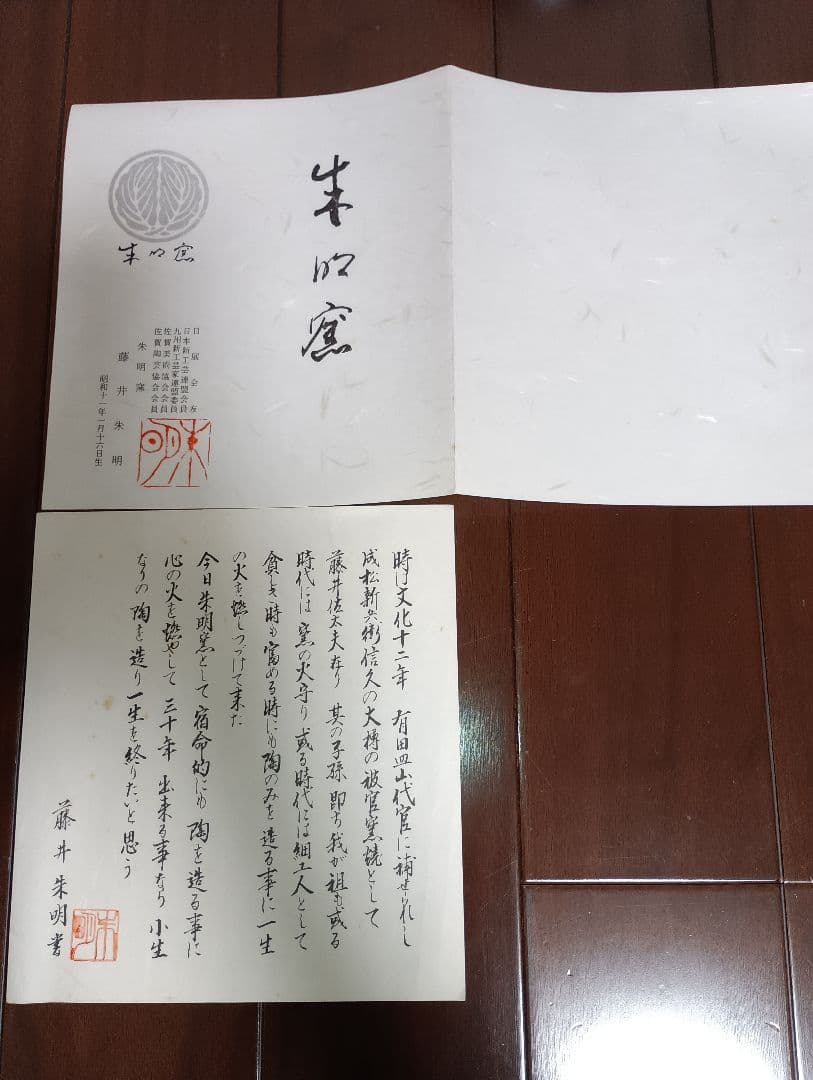 朱明窯
朱明窯
日展会友
日本新工芸連盟会員
九州新工芸家連盟委員
佐賀美術協会会員
佐賀陶芸協会会員
朱明窯
藤井朱明
昭和十一年一月十六日生
朱明
時は文化十二年 有田皿山代官に補せられし
成松新兵衛信久の大樽の被官窯焼として
藤井佐太夫なり 其の子孫 即ち我が祖も或る
時代には窯の火守り 或る時代には細工人として
貧しき時も富める時にも陶のみを造る事に一生
の火を燃しつづけて来た
今日朱明窯として宿命的にも陶を造る事に
心の火を燃やして三十年 出来る事なり 小生
なりの陶を造り一生を終りたいと思う
藤井朱明書
朱明